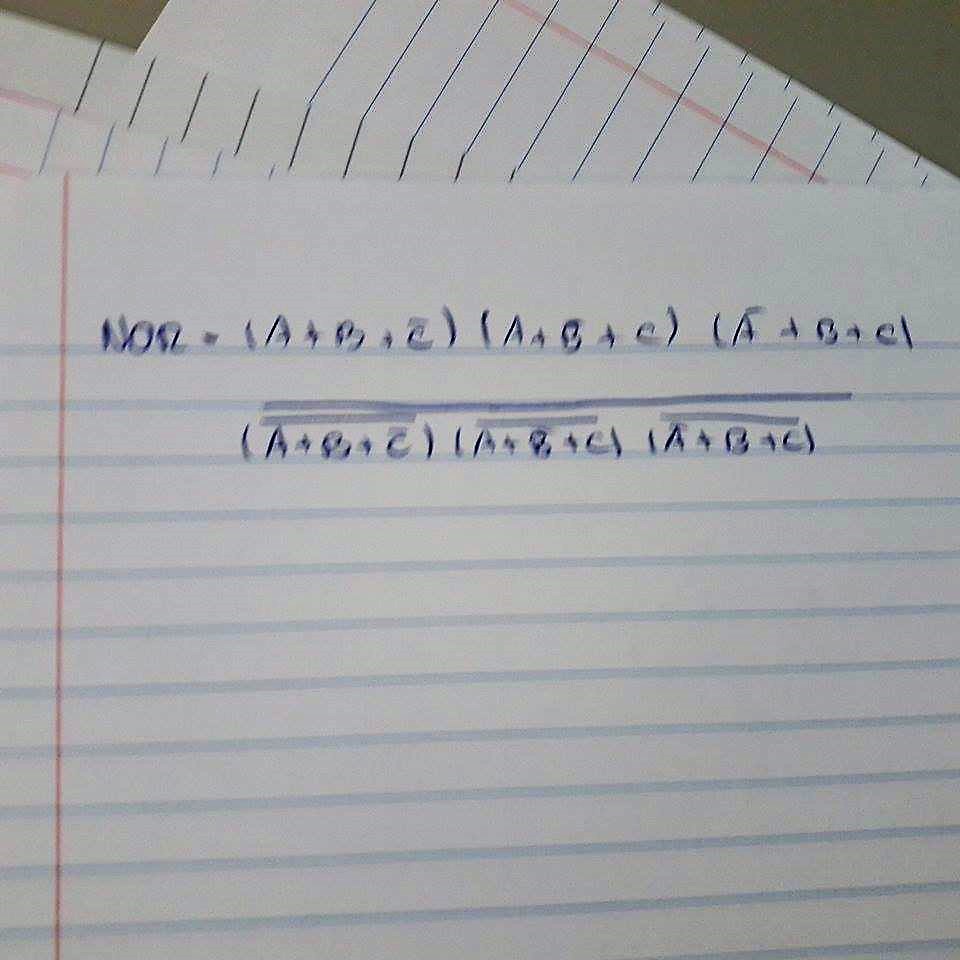 NOR = (A + B + C̅) (A + B̅ + C) (A̅ + B + C)
(A + B + C̅) (A + B̅ + C) (A̅ + B + C)